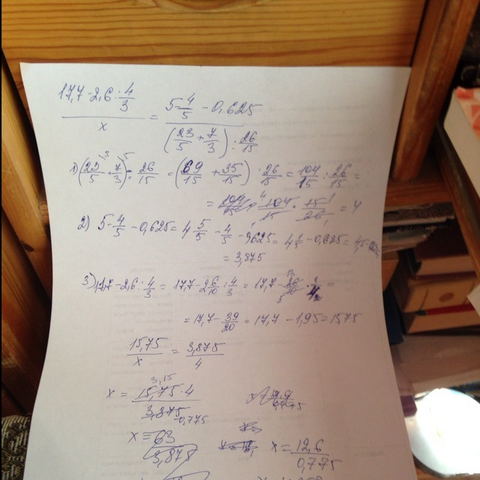 (17,7 - 2,6 : 4/3) / x = (5 - 4/5 - 0,625) / ((23/5 + 7/3) : 26/15)
1) (23/5 + 7/3) : 26/15 = (69/15 + 35/15) : 26/15 = 104/15 : 26/15 =
= 104/15 · 15/26 = 4
2) 5 - 4/5 - 0,625 = 4 5/5 - 4/5 - 0,625 = 4 1/5 - 0,625 =
= 3,875
3) 17,7 - 2,6 : 4/3 = 17,7 - 26/10 : 4/3 = 17,7 -
= 17,7 - 39/20 = 17,7 - 1,95 = 15,75
15,75 / x = 3,875 / 4
3,15
x = 15,75 · 4 / 3,875
0,775
x = 63 / 3,875
x = 12,6 / 0,775